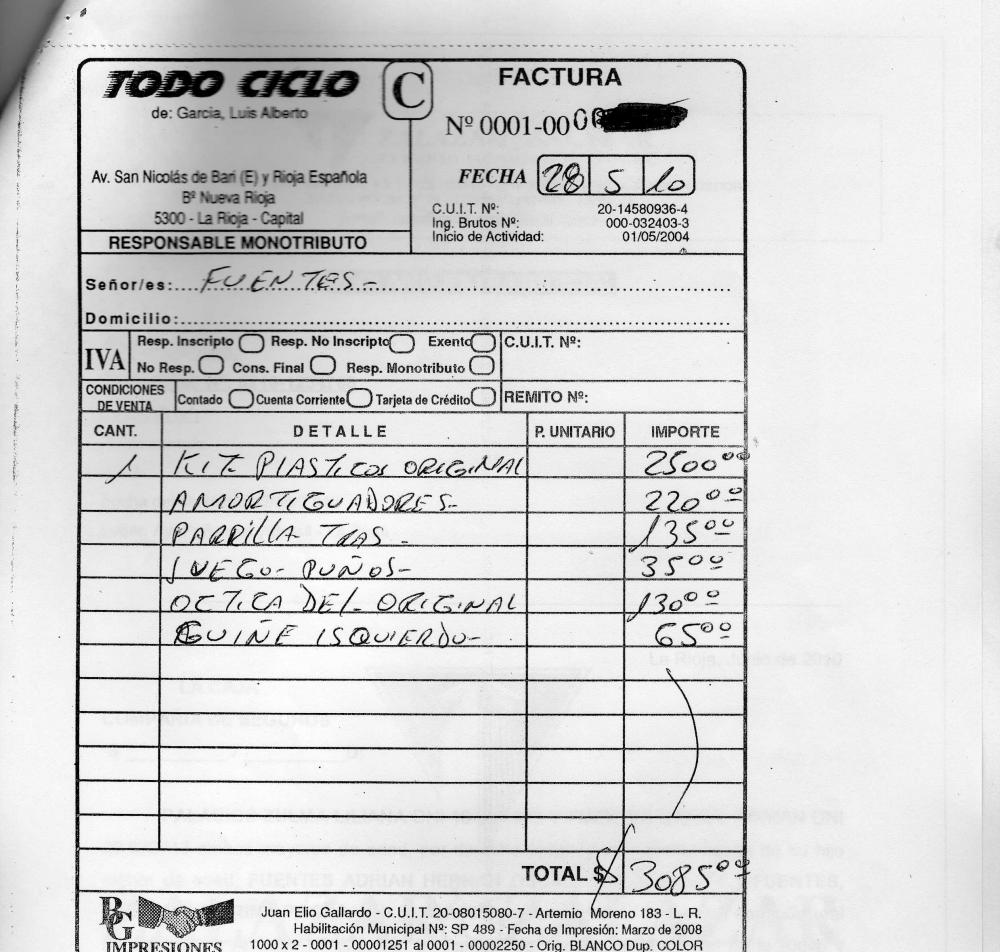 TODO CICLO
de: Garcia, Luis Alberto
Av. San Nicolás de Bari (E) y Rioja Española
Bº Nueva Rioja
5300 - La Rioja - Capital
RESPONSABLE MONOTRIBUTO
C
FACTURA
Nº 0001-00
FECHA 28 5 10
C.U.I.T. Nº: 20-14580936-4
Ing. Brutos Nº: 000-032403-3
Inicio de Actividad: 01/05/2004
Señor/es: FUENTES-
Domicilio:
IVA
Resp. Inscripto Resp. No Inscripto Exento
No Resp. Cons. Final Resp. Monotributo
C.U.I.T. Nº:
CONDICIONES DE VENTA
Contado Cuenta Corriente Tarjeta de Crédito
REMITO Nº:
CANT. DETALLE P. UNITARIO IMPORTE
1 KIT PLASTICOS ORIGINAL 2500 00
AMORTIGUADORES- 220 00
PARRILLA TRAS- 135 00
JUEGO- PUÑOS- 35 00
OCTICA DEL- ORIGINAL 130 00
GUIÑE ISQUIERDO- 65 00
TOTAL $ 3085 00
PG
IMPRESIONES
Juan Elio Gallardo - C.U.I.T. 20-08015080-7 - Artemio Moreno 183 - L. R.
Habilitación Municipal Nº: SP 489 - Fecha de Impresión: Marzo de 2008
1000 x 2 - 0001 - 00001251 al 0001 - 00002250 - Orig. BLANCO Dup. COLOR
La Rioja, Junio de 2010
LA CAJA
COMPAÑIA DE SEGUROS